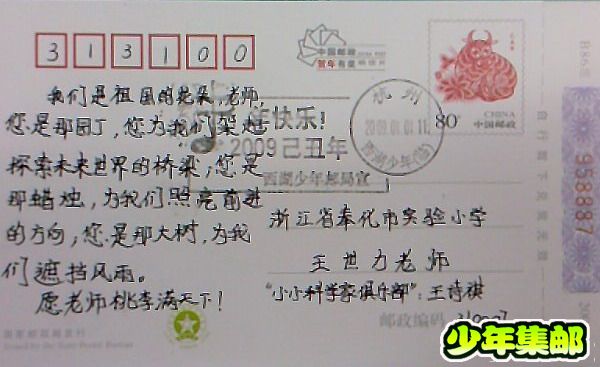 313100
中国邮政
贺年有奖
80分
CHINA
中国邮政
杭州
西湖少年(临)
牛快乐!
2009己丑年
西湖少年邮局宣
我们是祖国的花朵,老师
您是那园丁,您为我们架起
探索未来世界的桥梁,您是
那蜡烛,为我们照亮前进
的方向,您是那大树,为我
们遮挡风雨。
愿老师桃李满天下!
浙江省奉化市实验小学
王世力老师
“小小科学家俱乐部”:王诗祺
邮政编码
国家邮政局发行
958887
少年集邮